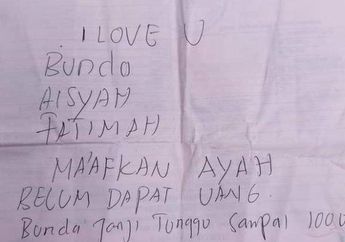 I LOVE U
Bunda
AISYAH
FATIMAH
MA'AFKAN AYAH
BELUM DAPAT UANG.
Bunda Janji Tunggu Sampai 100